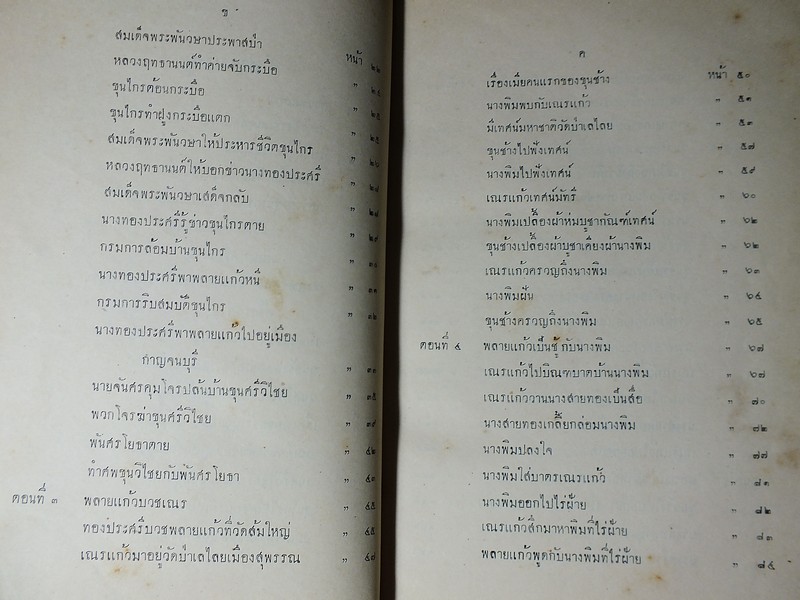 ข
หน้า
สมเด็จพระพันวษาประพาสป่า ๒๒
หลวงฤทธานนต์ทำค่ายจับกระบือ
ขุนไกรต้อนกระบือ
ขุนไกรทำฝูงกระบือแตก
สมเด็จพระพันวษาให้ประหารชีวิตขุนไกร
หลวงฤทธานนต์ให้บอกข่าวนางทองประศรี
สมเด็จพระพันวษาเสด็จกลับ
นางทองประศรีรู้ข่าวขุนไกรตาย
กรมการล้อมบ้านขุนไกร
นางทองประศรีพาพลายแก้วหนี
กรมการริบสมบัติขุนไกร
นางทองประศรีพาพลายแก้วไปอยู่เมือง
กาญจนบุรี " ๓๓
นายจันศรคุมโจรปล้นบ้านขุนศรีวิไชย " ๓๕
พวกโจรฆ่าขุนศรีวิไชย " ๓๙
พันศรโยธาตาย " ๔๒
ทำศพขุนวิไชยกับพันศรโยธา " ๔๓
ตอนที่ ๓ พลายแก้วบวชเณร " ๔๕
ทองประศรีบวชพลายแก้วที่วัดส้มใหญ่ " ๔๕
เณรแก้วมาอยู่วัดป่าเลไลยเมืองสุพรรณ " ๔๗
ค
เรื่องเมียคนแรกของขุนช้าง หน้า ๕๐
นางพิมพบกับเณรแก้ว " ๕๑
มีเทศน์มหาชาติวัดป่าเลไลย " ๕๓
ขุนช้างไปฟังเทศน์ " ๕๗
นางพิมไปฟังเทศน์ " ๕๙
เณรแก้วเทศน์มัทรี " ๖๐
นางพิมเปลื้องผ้าห่มบูชากัณฑ์เทศน์ " ๖๒
ขุนช้างเปลื้องผ้าบูชาเคียงผ้านางพิม " ๖๒
เณรแก้วครวญถึงนางพิม " ๖๓
นางพิมฝัน " ๖๔
ขุนช้างครวญถึงนางพิม " ๖๕
ตอนที่ ๔ พลายแก้วเป็นชู้กับนางพิม " ๖๗
เณรแก้วไปบิณฑบาตบ้านนางพิม " ๖๗
เณรแก้ววานนางสายทองเป็นสื่อ " ๗๐
นางสายทองเกลี้ยกล่อมนางพิม
นางพิมปลงใจ " ๗๗
นางพิมใส่บาตรเณรแก้ว " ๘๑
นางพิมออกไปไร่ฝ้าย " ๘๒
เณรแก้วสึกมาหาพิมที่ไร่ฝ้าย " ๘๓
พลายแก้วพูดกับนางพิมที่ไร่ฝ้าย " ๘๔